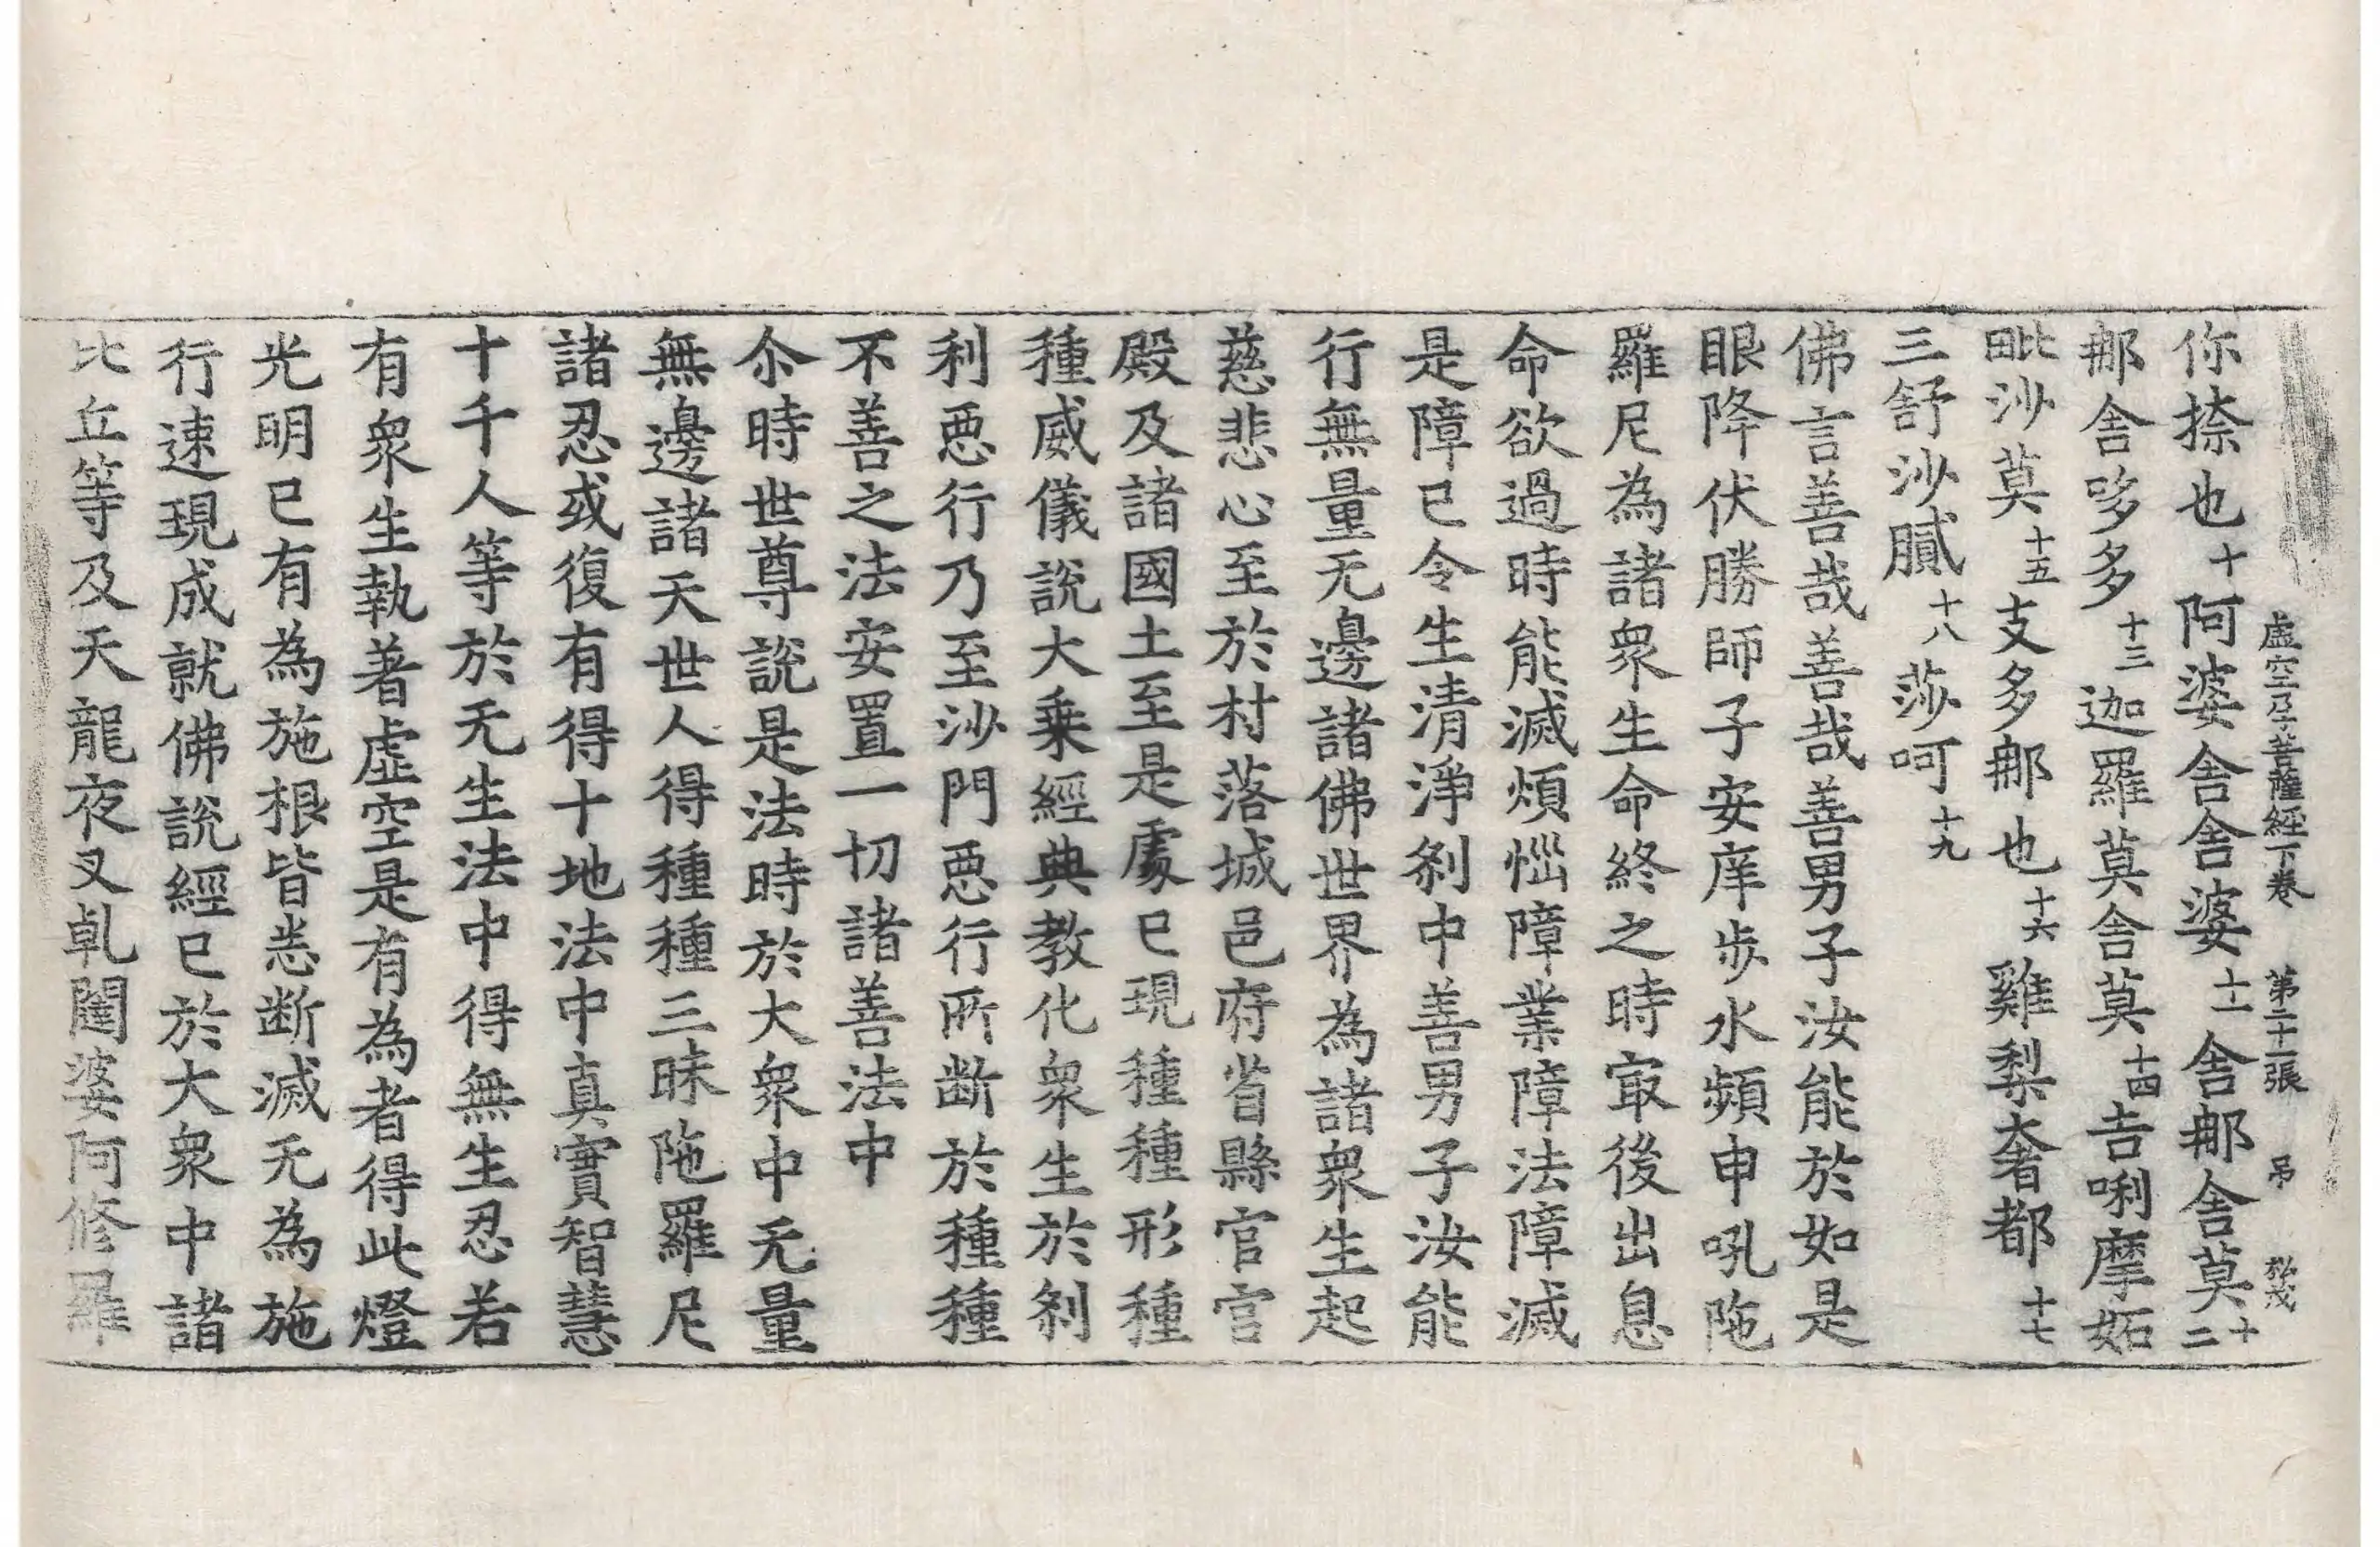 虛空孕菩薩經下卷 第二十一張 吊 弘茂
你捺也十阿婆舍舍婆十一舍郍舍莫十二
郍舍哆多十三迦羅莫舍莫十四吉唎摩妬
毗沙莫十五支多郍也十六雞梨奢都十七
三舒沙膩十八莎呵十九
佛言善哉善哉善男子汝能於如是
眼降伏勝師子安庠步水頻申吼陁
羅尼為諸衆生命終之時㝡後出息
命欲過時能滅煩惱障業障法障滅
是障已令生清淨刹中善男子汝能
行無量无邊諸佛世界為諸衆生起
慈悲心至於村落城邑府省縣官宮
殿及諸國土至是處已現種種形種
種威儀說大乗經典教化衆生於刹
利惡行乃至沙門惡行所断於種種
不善之法安置一切諸善法中
尒時世尊說是法時於大衆中无量
無邊諸天世人得種種三昧陁羅尼
諸忍或復有得十地法中真實智慧
十千人等於无生法中得無生忍若
有衆生執著虛空是有為者得此燈
光明已有為施根皆悉断滅无為施
行速現成就佛說經已於大衆中諸
比丘等及天龍夜叉乹闥婆阿修羅